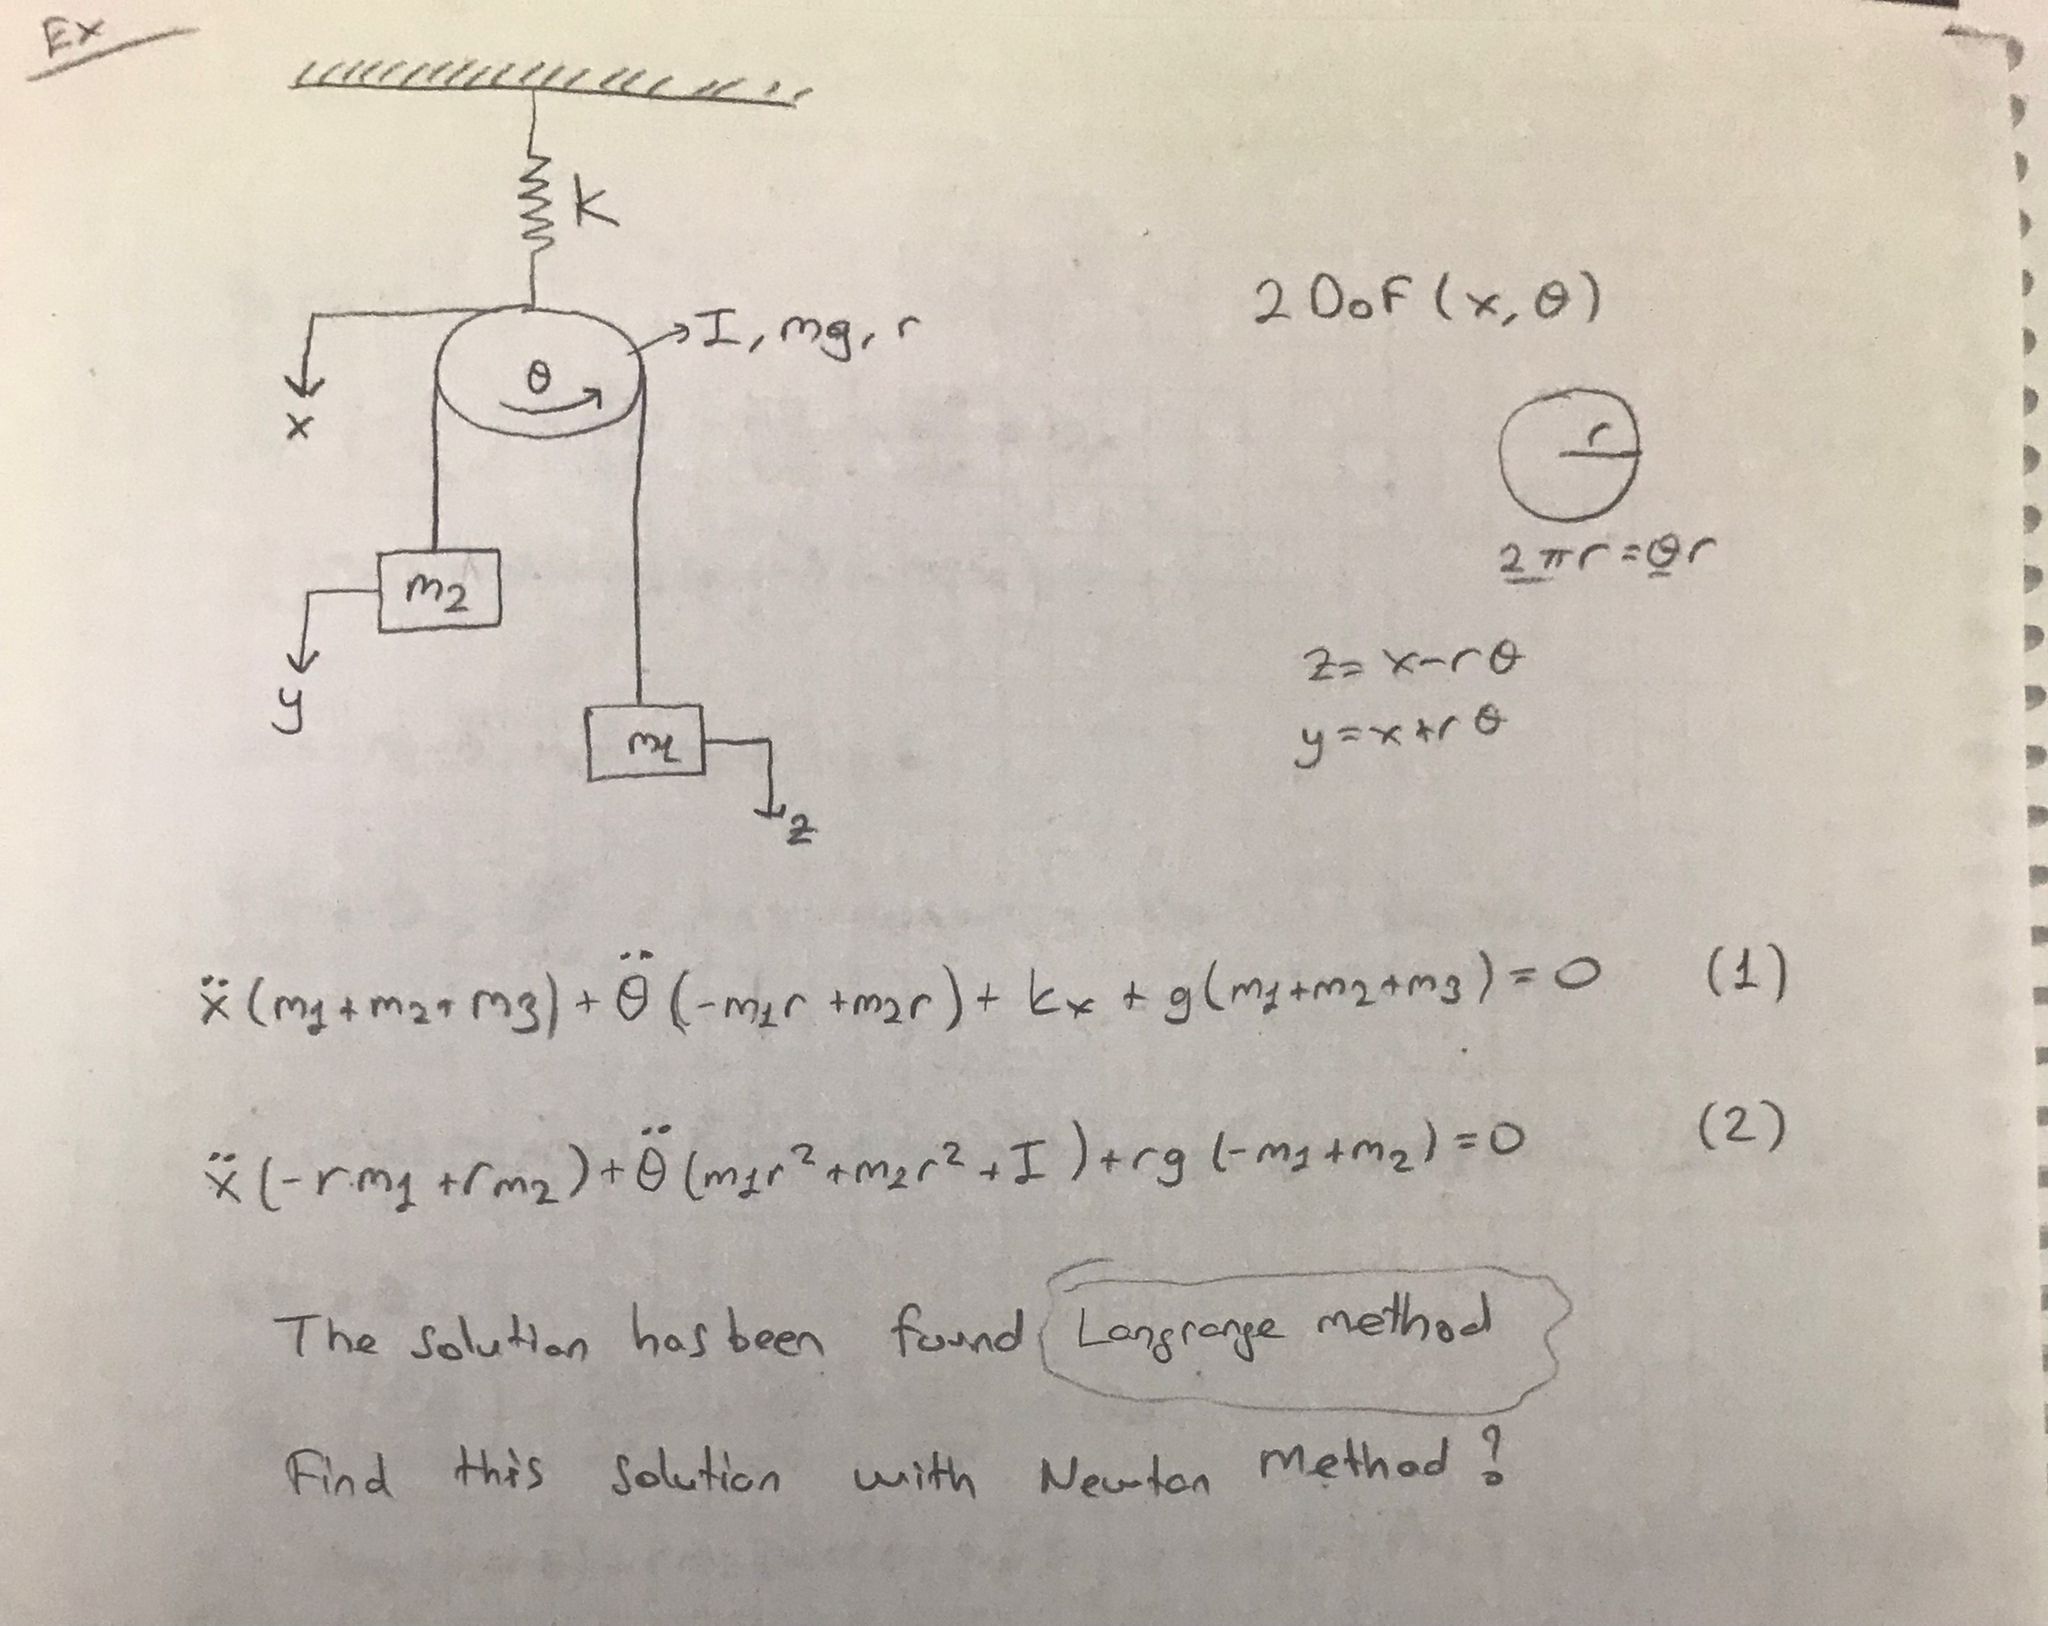 Ex
K
I, mg, r
2 DoF (x, θ)
θ
x
r
2πr = θr
m2
z = x-rθ
y
y = x+rθ
m1
z
ẍ (m1+m2+m3) + θ̈ (-m1r +m2r) + kx + g(m1+m2+m3) = 0 (1)
ẍ (-r m1 + r m2) + θ̈ (m1r² + m2r² + I) + rg (-m1+m2) = 0 (2)
The solution has been found Langrange method
Find this solution with Newton Method?